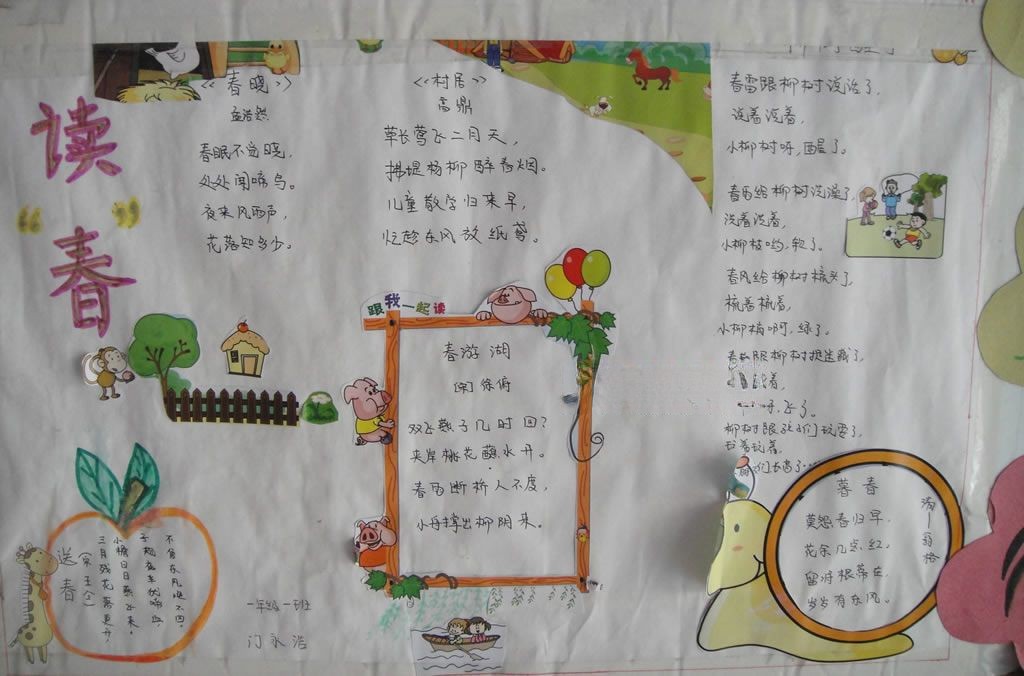 读
“春”
《春晓》
孟浩然
春眠不觉晓,
处处闻啼鸟。
夜来风雨声,
花落知多少。
《村居》
高鼎
草长莺飞二月天,
拂堤杨柳醉春烟。
儿童散学归来早,
忙趁东风放纸鸢。
跟我一起读
春游湖
[宋]徐俯
双飞燕子几时回?
夹岸桃花蘸水开。
春雨断桥人不度,
小舟撑出柳阴来。
春雷跟柳树说话了,
说着说着,
小柳树呀,醒了。
春雨给柳树洗澡了,
洗着洗着,
小柳枝哟,软了。
春风给柳树梳头了,
梳着梳着,
小柳梢啊,绿了。
春燕跟柳树捉迷藏了,
着,
飞了。
柳树跟孩子们玩耍了,
玩着玩着,
们长高了…
送春
(宋王令)
三月残花落更开,
小檐日日燕飞来。
子规夜半犹啼血,
不信东风唤不回。
一年级一班
门永浩
暮春
清-翁格
莫怨春归早,
花余几点红。
留将根蒂在,
岁岁有东风。